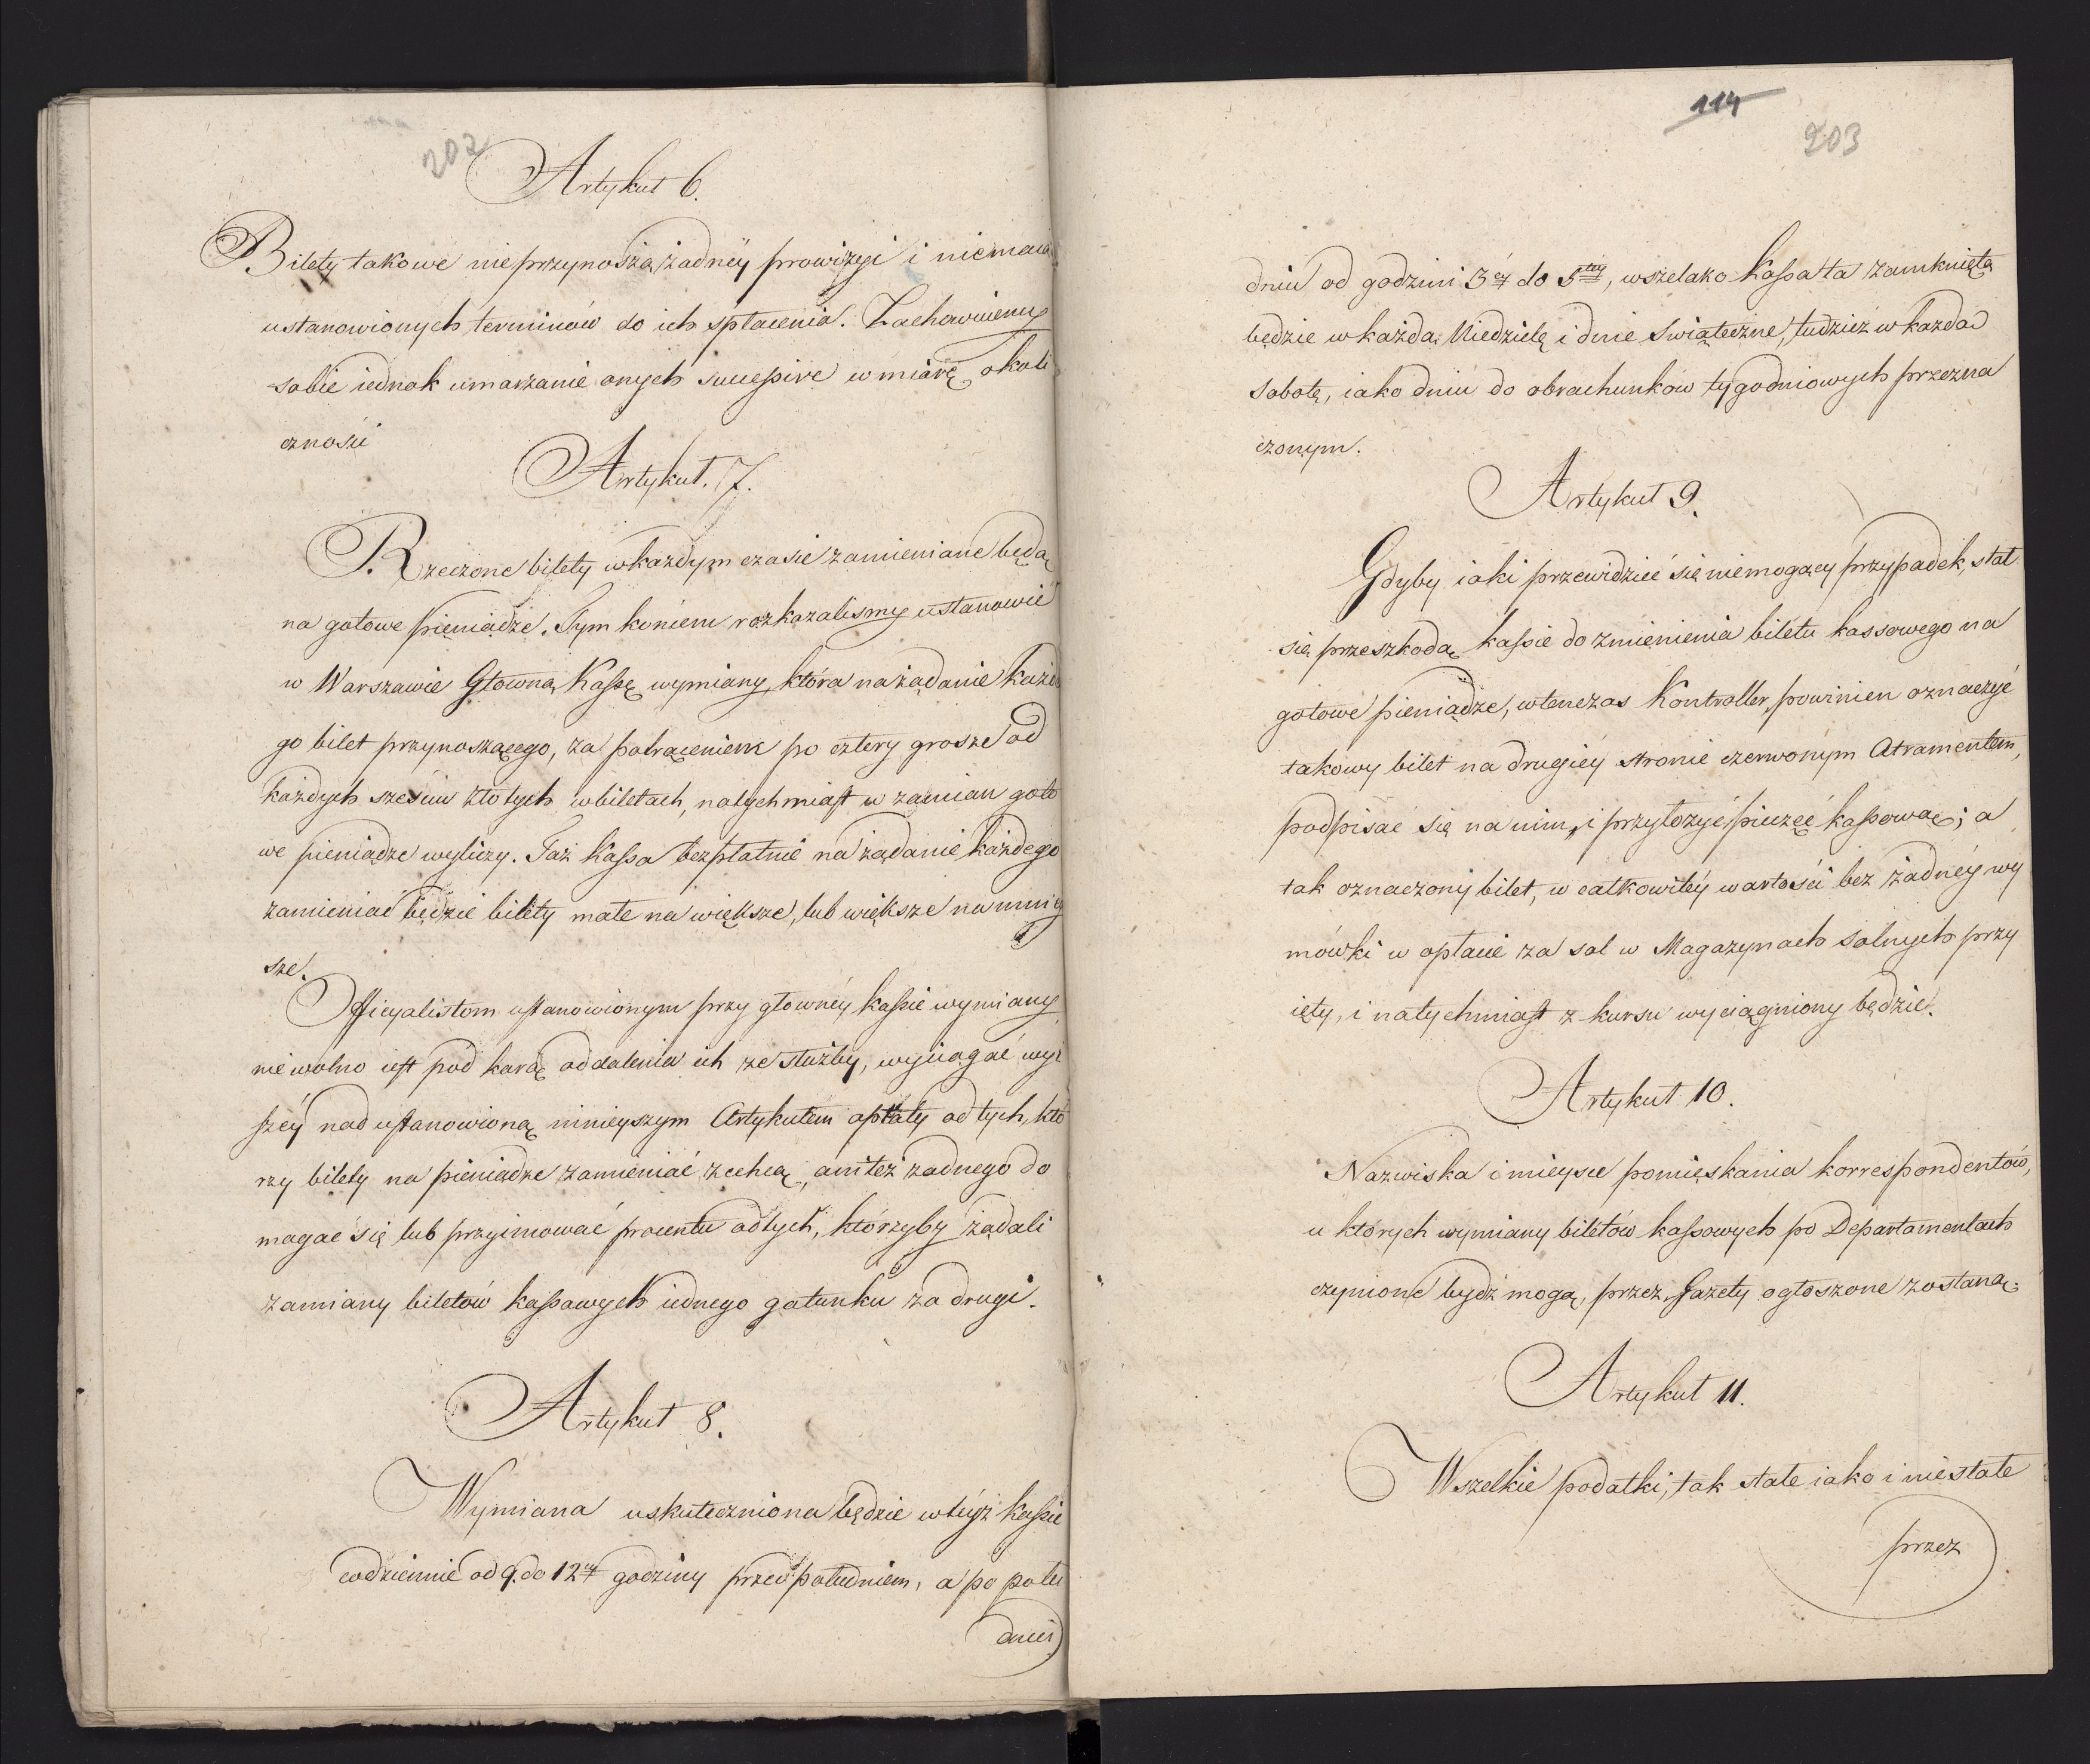 202
Artykuł 6.
Bilety takowe nieprzynoszą żadnéy prowizyi i niemaią
ustanowionych terminów do ich spłacenia. Zachowuiemy
sobie iednak umarzanie onych sucessive w miarę okoli
czności
Artykuł. 7.
Rzeczone bilety w każdym czasie zamieniane będą
na gotowe pieniądze. Tym końcem rozkazalismy ustanowić
w Warszawie Głowną Kassę wymiany, która na żądanie każde
go bilet przynoszącego, za potrąceniem po cztery grosze od
każdych sześciu złotych w biletach, natychmiast w zamian goto
we pieniądze wyliczy. Taż Kassa bezpłatnie na żądanie każdego
zamieniać będzie bilety małe na większe, lub większe na mniey
sze.
Officyalistom ustanowionym przy głownéy kassie wymiany
nie wolno iest pod karą oddalenia ich ze służby, wyciągać wyż
széy nad ustanowioną ninieyszym Artykułem opłaty od tych, któ
rzy bilety na pieniądze zamieniać zechcą, ani też żadnego do
magać się lub przyimować procentu od tych, którzyby żądali
zamiany biletów kassowych iednego gatunku za drugi.
Artykuł 8.
Wymiana uskuteczniona będzie w téyż kassie
codziennie od 9. do 12éy godziny przed południem, a po połu
dniu
114
203
dniu od godzini 3éy do 5tey, wszelako Kassa ta zamknięta
będzie w każdą Niedzielę i dnie Swiąteczne, tudzież w każdą
Sobotę, iako dniu do obrachunków tygodniowych przezna
czonym.
Artykuł 9.
Gdyby iaki przewidzieć się niemogący przypadek, stał
się przeszkodą kassie do zmienienia biletu kassowego na
gotowe pieniądze, wtenczas Kontroller powinien oznaczyć
takowy bilet na drugiéy stronie czerwonym Atramentem,
podpisać się na nim, i przyłożyć pieczęć kassową; a
tak oznaczony bilet, w całkowitéy wartości bez żadnéy wy
mówki w opłacie za sol w Magazynach solnych przy
ięty, i natychmiast z kursu wyciągniony będzie.
Artykuł 10.
Nazwiska i mieysce pomięskania korrespondentów,
u których wymiany biletów kassowych po Departamentach
czynione bydź mogą, przez Gazety ogłoszone zostaną.
Artykuł 11.
Wszelkie podatki, tak stałe iako i niestałe
przez